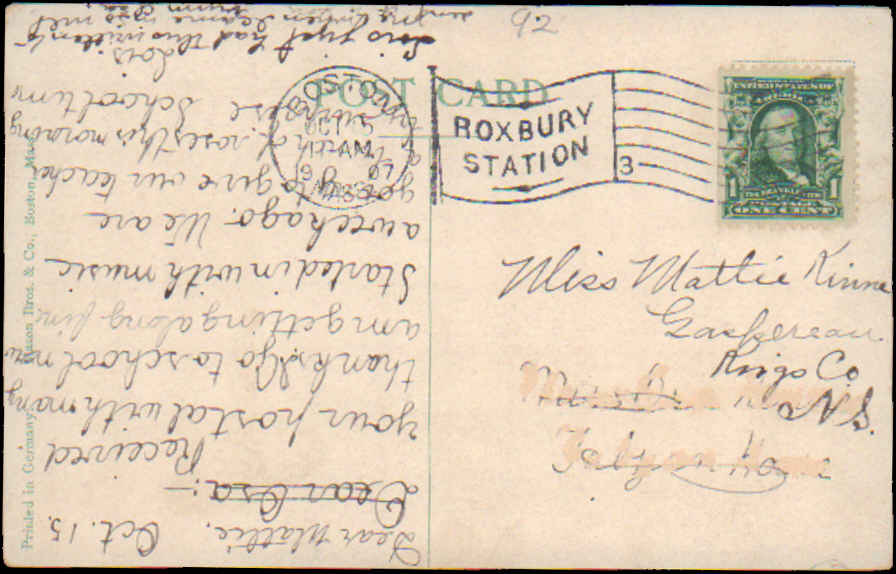 POST CARD
BOSTON
OCT 15
11 AM
MASS.
ROXBURY
STATION
3
UNITED STATES OF
AMERICA
1
1
FRANKLIN
ONE CENT
92
Miss Mattie Kinne
Gaspereau
Kings Co
N.S.
Printed in Germany
Mason Bros. & Co., Boston, Mass.
Oct. 15.
Dear Mattie.
Dear Ora:-
Received
your postal with many
thanks. Go to school now
am getting along fine
Started in with music
a week ago. We are
going to give our teacher
worth of roses this morning
school time
Lois.
Lois just had this written to